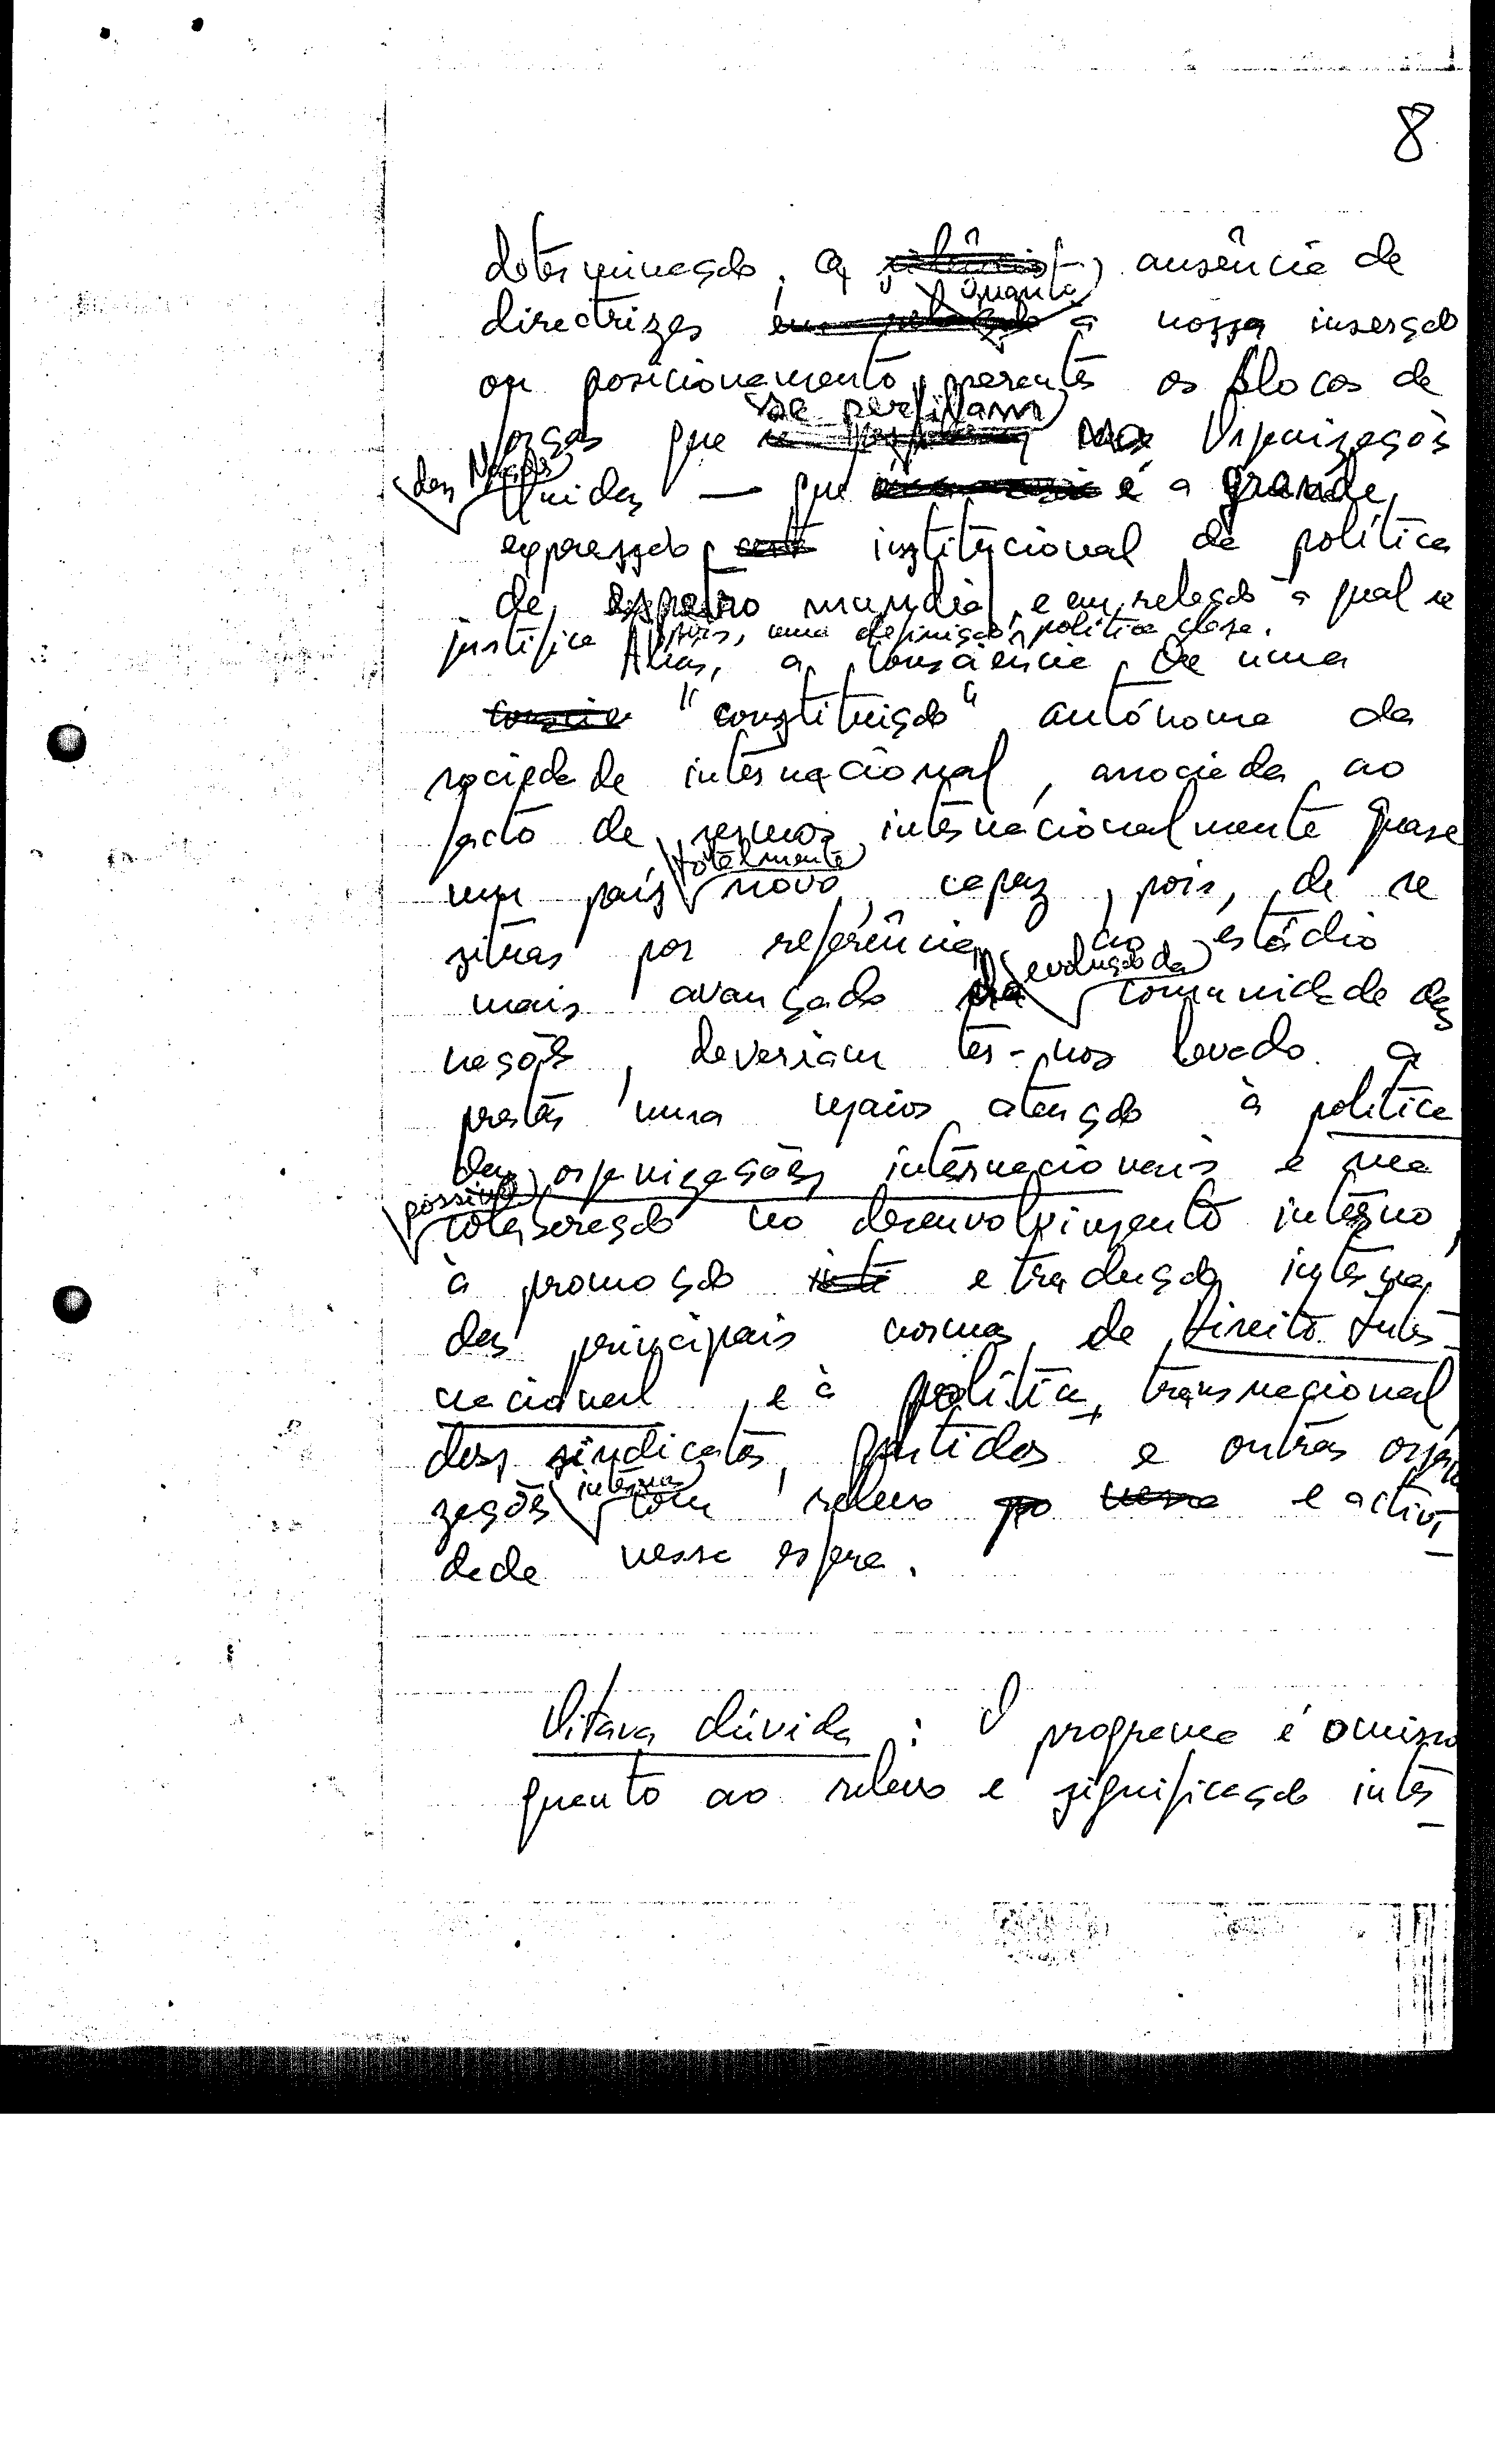 8
determinação, a ausência de
directrizes quanto à nossa inserção
ou posicionamento perante os blocos de
forças que se perfilam nas Organizações
das Nações
Unidas — que é a grande
expressão institucional da política
de espectro mundial, e em relação à qual se
justifica, pois, uma definição política clara.
Aliás, a consciência de uma
"constituição" autónoma da
sociedade internacional, associada ao
facto de sermos internacionalmente quase
um país totalmente novo, capaz, pois, de se
situar por referência ao estádio
mais avançado da evolução da comunidade das
nações, deveriam ter-nos levado a
prestar uma maior atenção à política
das organizações internacionais e sua
possível
colaboração no desenvolvimento interno,
à promoção e tradução interna
das principais normas de Direito Inter-
nacional, e à política transnacional
dos sindicatos, partidos e outras organi
zações internas com relevo e activi
dade nessa esfera.
Oitava dúvida: O programa é omisso
quanto ao relevo e significação inter